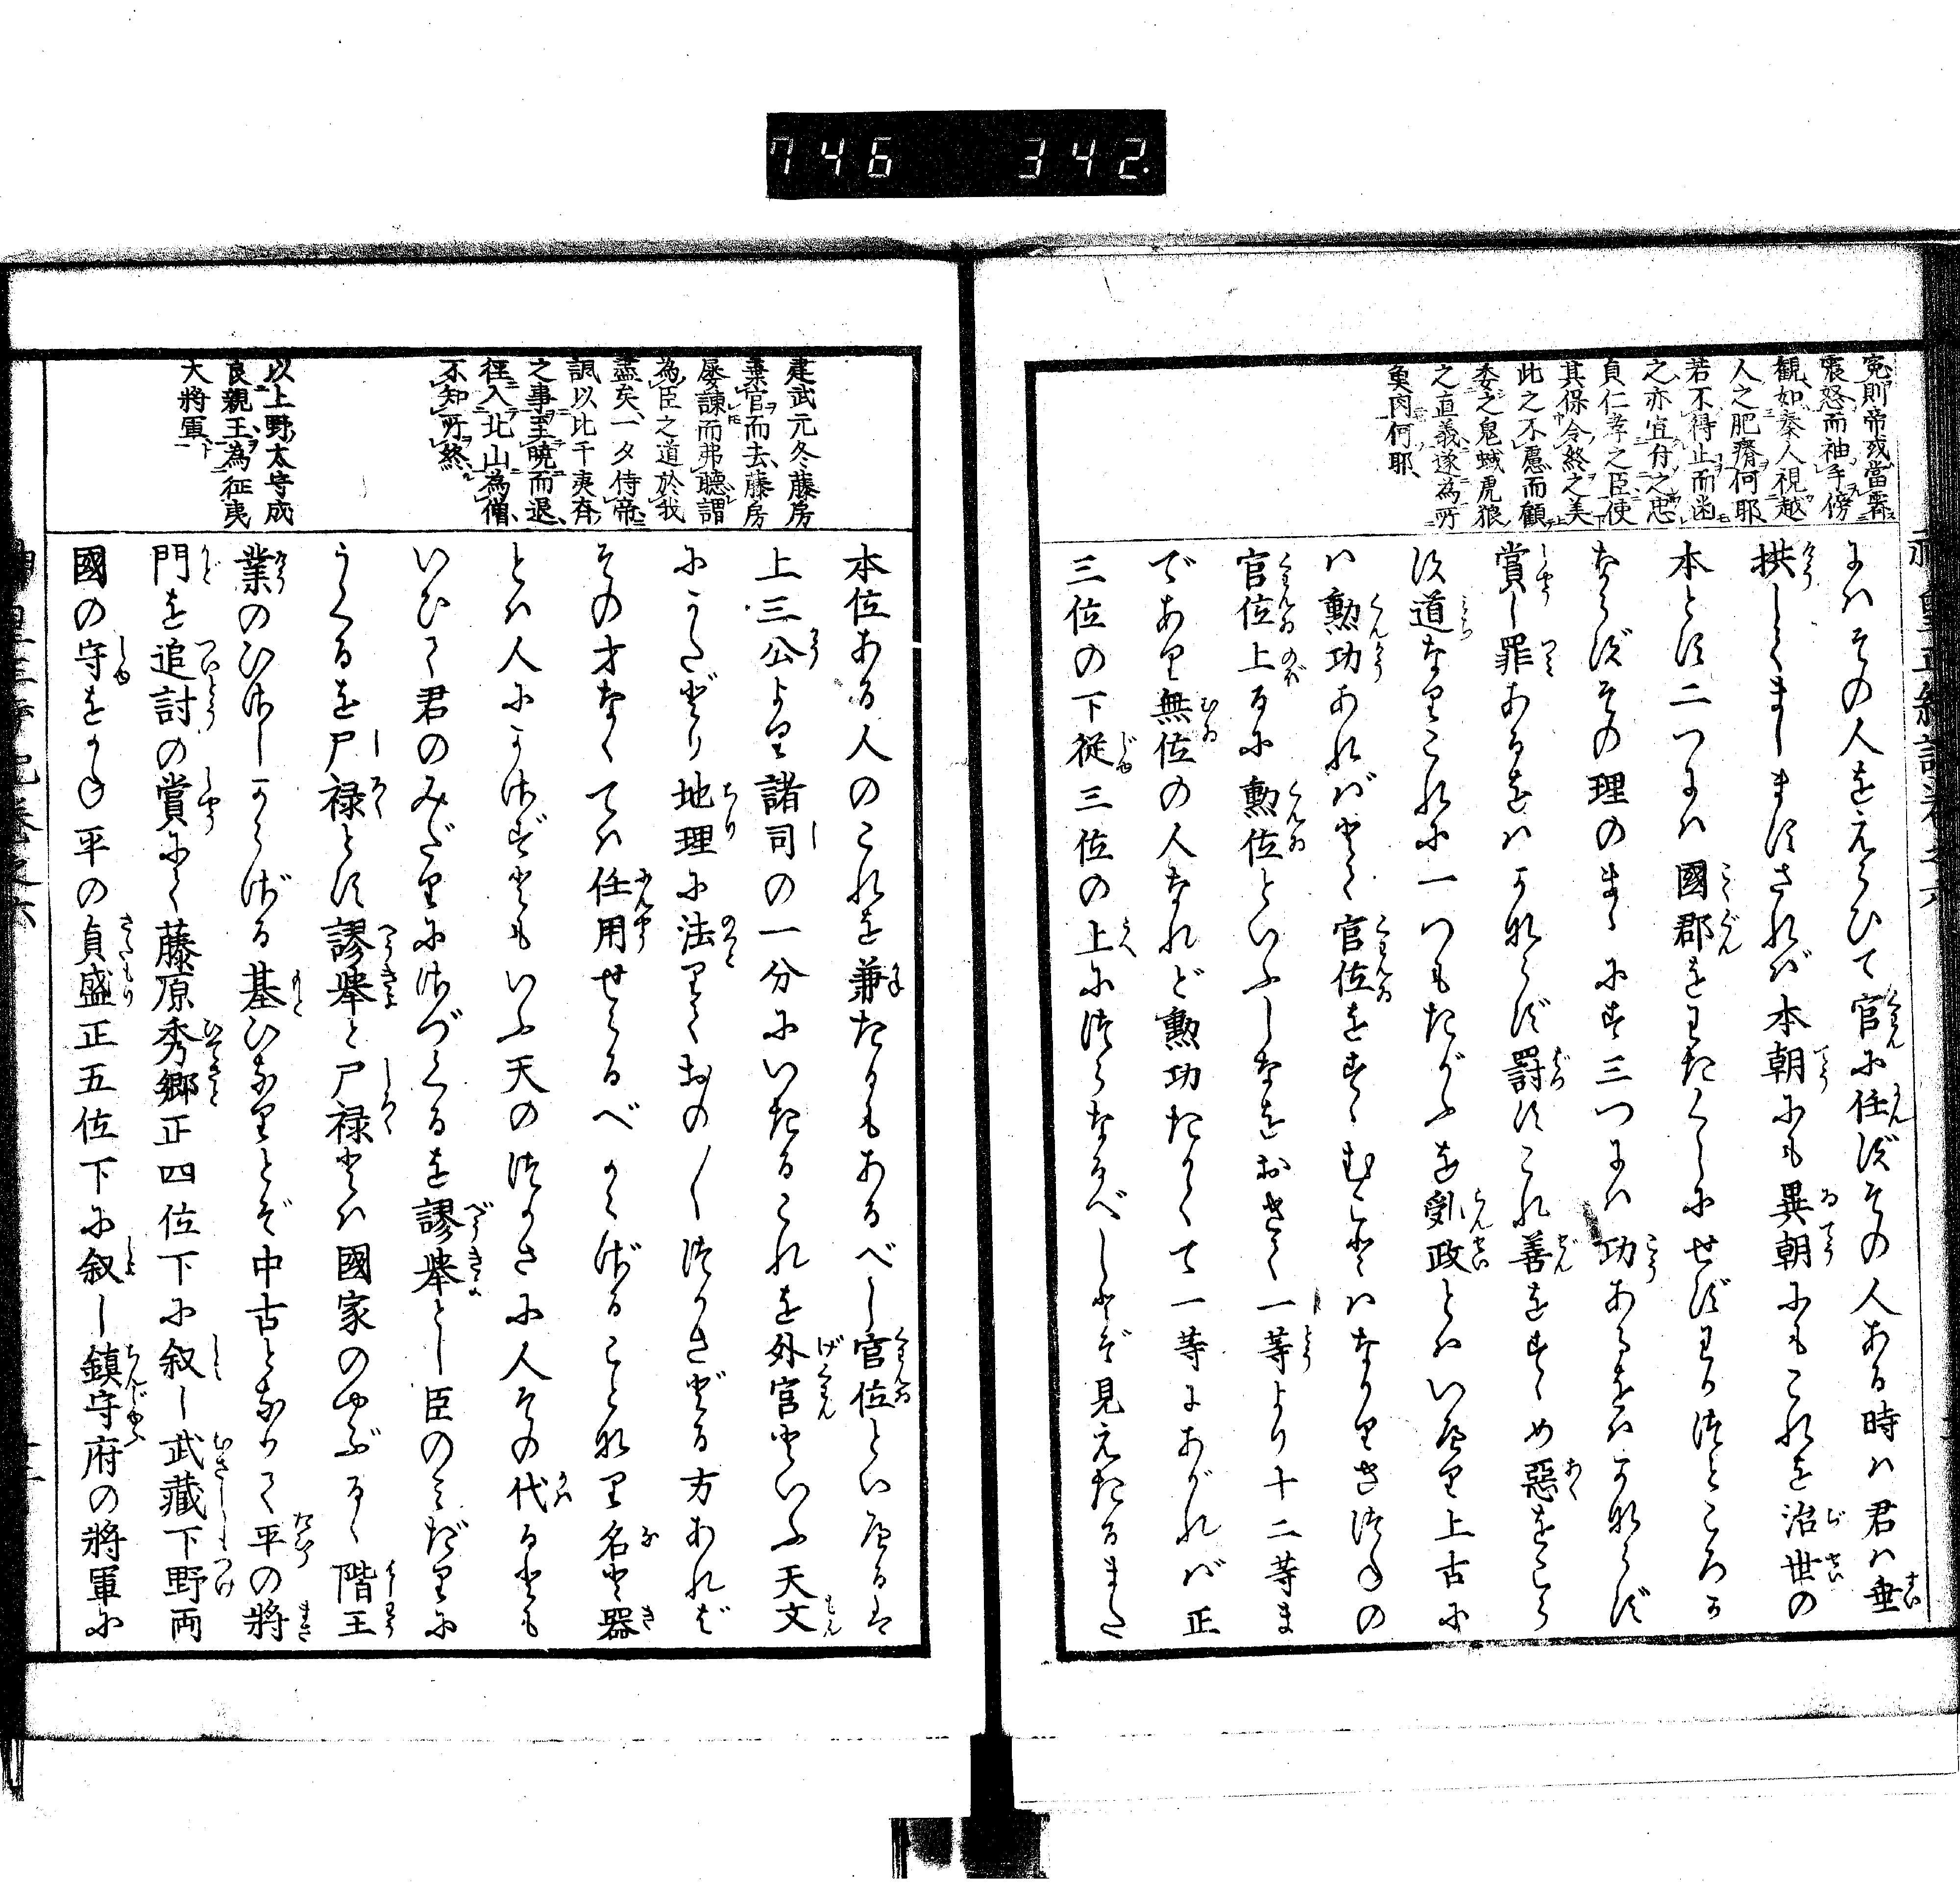 746 342.
冤則帝或當霽
震怒而袖手傍
観如秦人視越
人之肥瘠何耶
若不得止而出
之亦宜付之忠
貞仁孝之臣使
其保令終之美
此之不慮而顧
委之鬼蜮虎狼
之直義遂為所
魚肉何耶
にハその人をえらひて官に任ずその人ある時ハ君ハ垂
拱しましますされバ本朝にも異朝にもこれを治世の
本とす二つにハ國郡をわたくしにせずわかつところか
ならずその理のまゝにす三つにハ功あるをハかならず
賞し罪あるをハかならず罰すこれ善をすゝめ惡をこら
す道なりこれに一つもたがふを乱政とハいへり上古に
ハ勲功あれバとて官位をすゝむことハなかりきつねの
官位上るに勲位といふしなをおきて一等より十二等ま
であり無位の人なれど勲功たかくて一等にあがれバ正
三位の下従三位の上につらなるべしとぞ見えたるまた
建武元冬藤房
棄官而去藤房
屡諫而弗聴謂
為臣之道於我
盡矣一夕侍帝
諷以比干夷齊
之事至曉而退
徑入北山為僧
不知所終
以上野太守成
良親王為征夷
大將軍
本位ある人のこれを兼たるもあるべし官位といへるは
上三公より諸司の一分にいたるこれを外官といふ天文
にかたどり地理に法りておの〳〵つかさどる方あれば
その才なくてハ任用せらるべからざることなり名と器
とハ人にかさずともいふ天のつかさに人その代るとも
いひて君のみだりにさづくるを謬擧とし臣のみだりに
うくるを尸禄とす謬擧と尸禄とハ國家のやぶるゝ階王
業のひさしからざる基ひなりとぞ中古となりて平の將
門を追討の賞にて藤原秀郷正四位下に叙し武藏下野両
國の守をかね平の貞盛正五位下に叙し鎮守府の將軍に